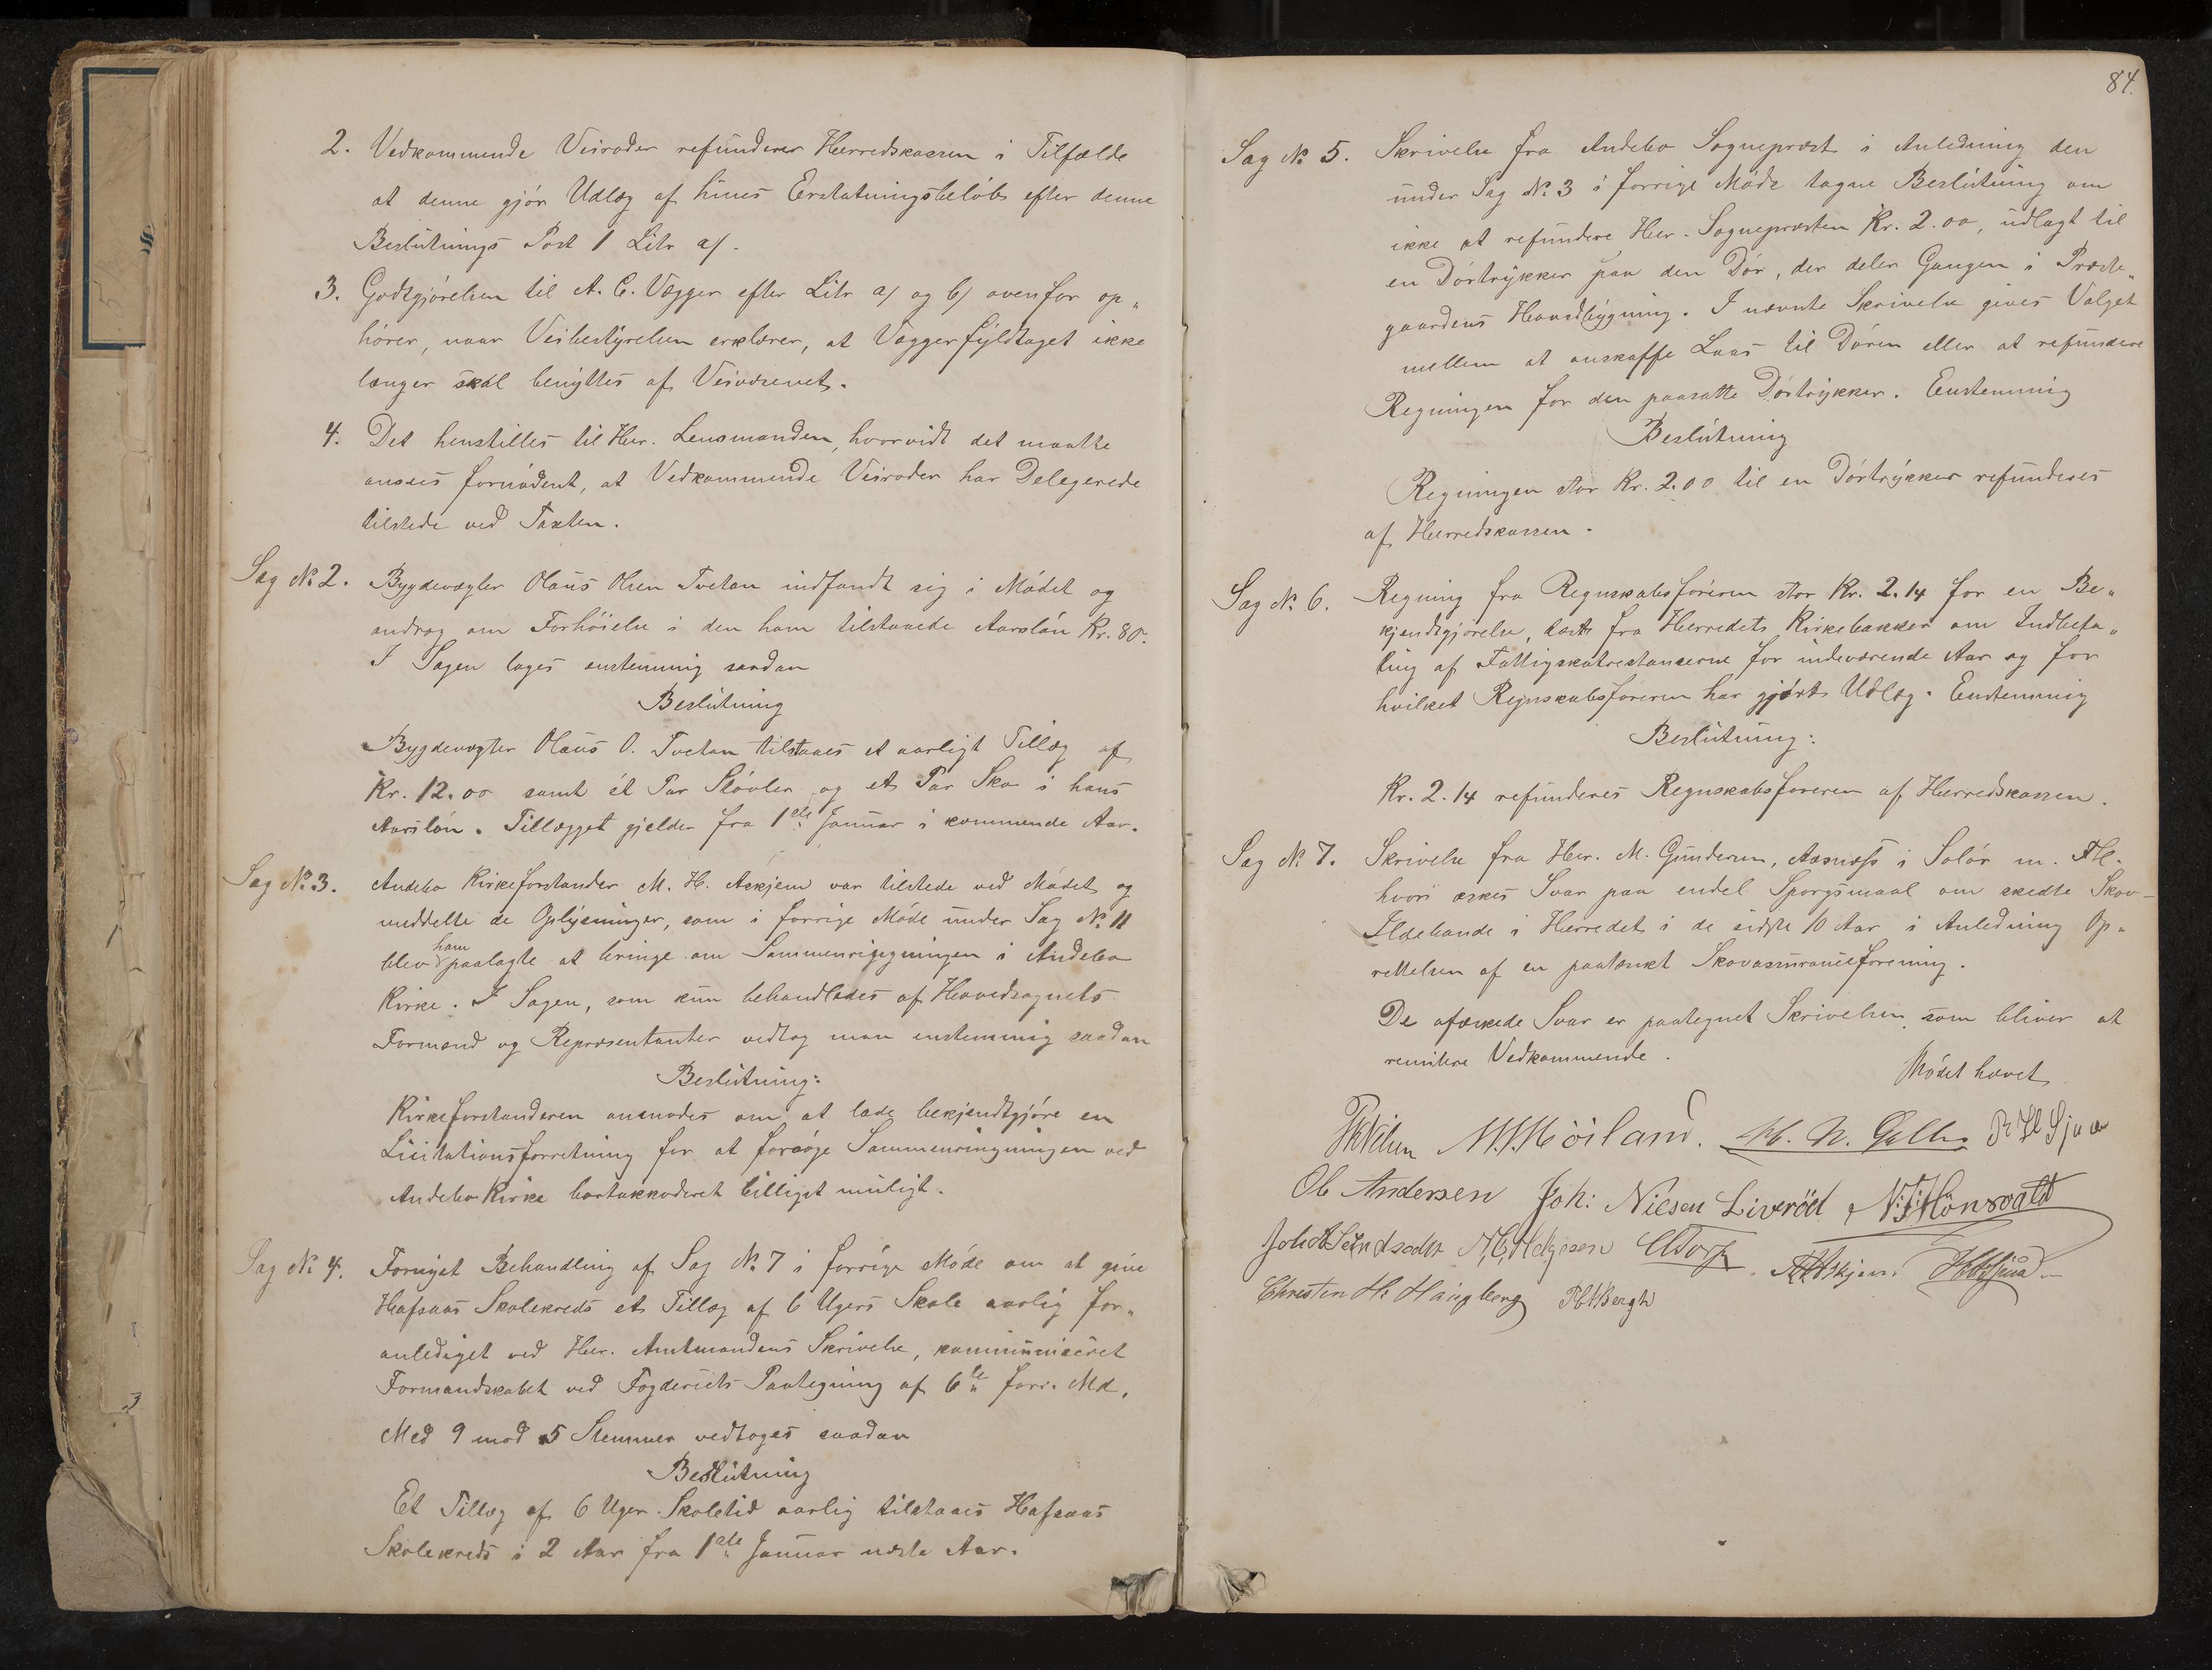 2. Vedkommende Veiroder refunderer Herredskassen i Tilfælde
at denne gjør Udlæg af hines Erstatningsbeløb efter denne
Beslutnings Post 1 Litr a/.
3. Godtgjørelsen til A. C. Vegger efter Litr a/ og b/ ovenfor op„
hører, naar Veibestyrelsen erklærer, at Veggerfyldtaget ikke
længer skal benyttes af Veivæsenet.
4. Det henstilles til Hrr. Lensmanden, hvorvidt det maatte
ansees fornødent, at Vedkommende Veiroder har Delegerede
tilstede ved Taxten.
Sag No 2. Bygdevægter Olaus Olsen Tvetan indfandt sig i Mødet og
androg om Forhøielse i den ham tilstaaede Aarsløn Kr. 80.
I Sagen toges enstemmig saadan
Beslutning
Bygdevægter Olaus O. Tvetan tilstaaes et aarligt Tillæg af
Kr. 12.00 samt ét Par Støvler og et Par Sko i hans
Aarsløn. Tillægget gjelder fra 1ste Januar i kommende Aar.
Sag No 3. Andebo Kirkeforstander M. H. Askjem var tilstede ved Mødet og
meddelte de Oplysninger, som i forrige Møde under Sag No 11
blev ham paalagte at bringe om Sammenringningen i Andebo
Kirke. I Sagen, som kun behandledes af Hovedsognets
Formænd og Repræsentanter vedtog man enstemmig saadan
Beslutning:
Kirkeforstanderen anmodes om at lade bekjendtgjøre en
Licitationsforretning for at forsøge Sammenringningen ved
Andebo Kirke bortakkorderet billigst muligt.
Sag No 4. Fornyet Behandling af Sag No 7 i forrige Møde om at give
Hafsaas Skolekreds et Tillæg af 6 Ugers Skole aarlig for„
anlediget ved Hrr. Amtmandens Skrivelse, kommuniceret
Formandskabet ved Fogderiets Paategning af 6te forr. Md.
Med 9 mod 5 Stemmer vedtoges saadan
Beslutning
Et Tillæg af 6 Uger Skoletid aarlig tilstaaes Hafsaas
Skolekreds i 2 Aar fra 1ste Januar næste Aar.
84.
Sag No 5. Skrivelse fra Andebo Sogneprest i Anledning den
under Sag No 3 i forrige Møde tagne Beslutning om
ikke at refundere Hrr. Sognepræsten Kr. 2.00, udlagt til
en Dørtrykker paa den Dør, der deler Gangen i Præste„
gaardens Hovedbygning. I nævnte Skrivelse gives Valget
mellem at anskaffe Laas til Døren eller at refundere
Regningen for den paasatte Dørtrykker. Enstemmig
Beslutning
Regningen stor Kr. 2.00 til en Dørtrykker refunderes
af Herredskassen.
Sag No 6. Regning fra Regnskabsføreren stor Kr. 2.14 for en Be„
kjendtgjørelse, læst fra Herredets Kirkebakker om Indbeta„
ling af Fattigskatrestancerne for indeværende Aar og for
hvilket Regnskabsføreren har gjort Udlæg. Enstemmig
Beslutning:
Kr. 2.14 refunderes Regnskabsføreren af Herredskassen.
Sag No 7. Skrivelse fra Hrr. M. Gundersen, Aasnæss i Solør m. Fl.
hvori æskes Svar paa endel Spørgsmaal om skedte Skov-
Ildebrande i Herredet i de sidste 10 Aar i Anledning Op„
rettelsen af en paatænkt Skovassuranceforening.
De afæskede Svar er paategnet Skrivelsen, som bliver at
remittere Vedkommende.
Mødet hævet
M. Møiland. H. N. Galle
Ol. Andersen Joh: Nilsen Liverød N. T. Hønsvald
N. C. Helgesen C Torp Askjem
Christen H. Haugberg Bergh